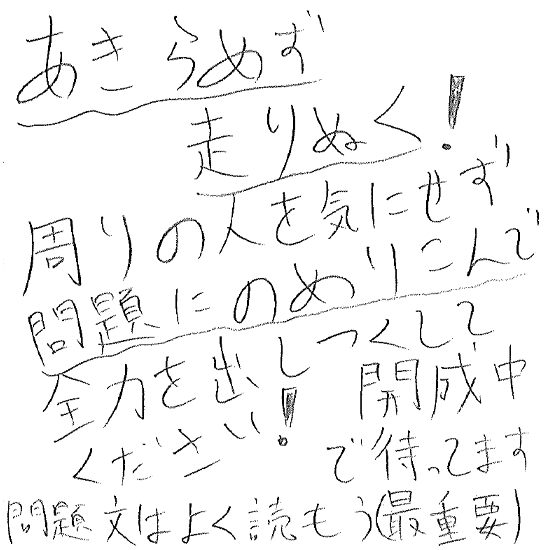 あきらめず
走りぬく！
周りの人を気にせず
問題にのめりこんで
全力を出しつくして
ください！
開成中
で待ってます
問題文はよく読もう(最重要)